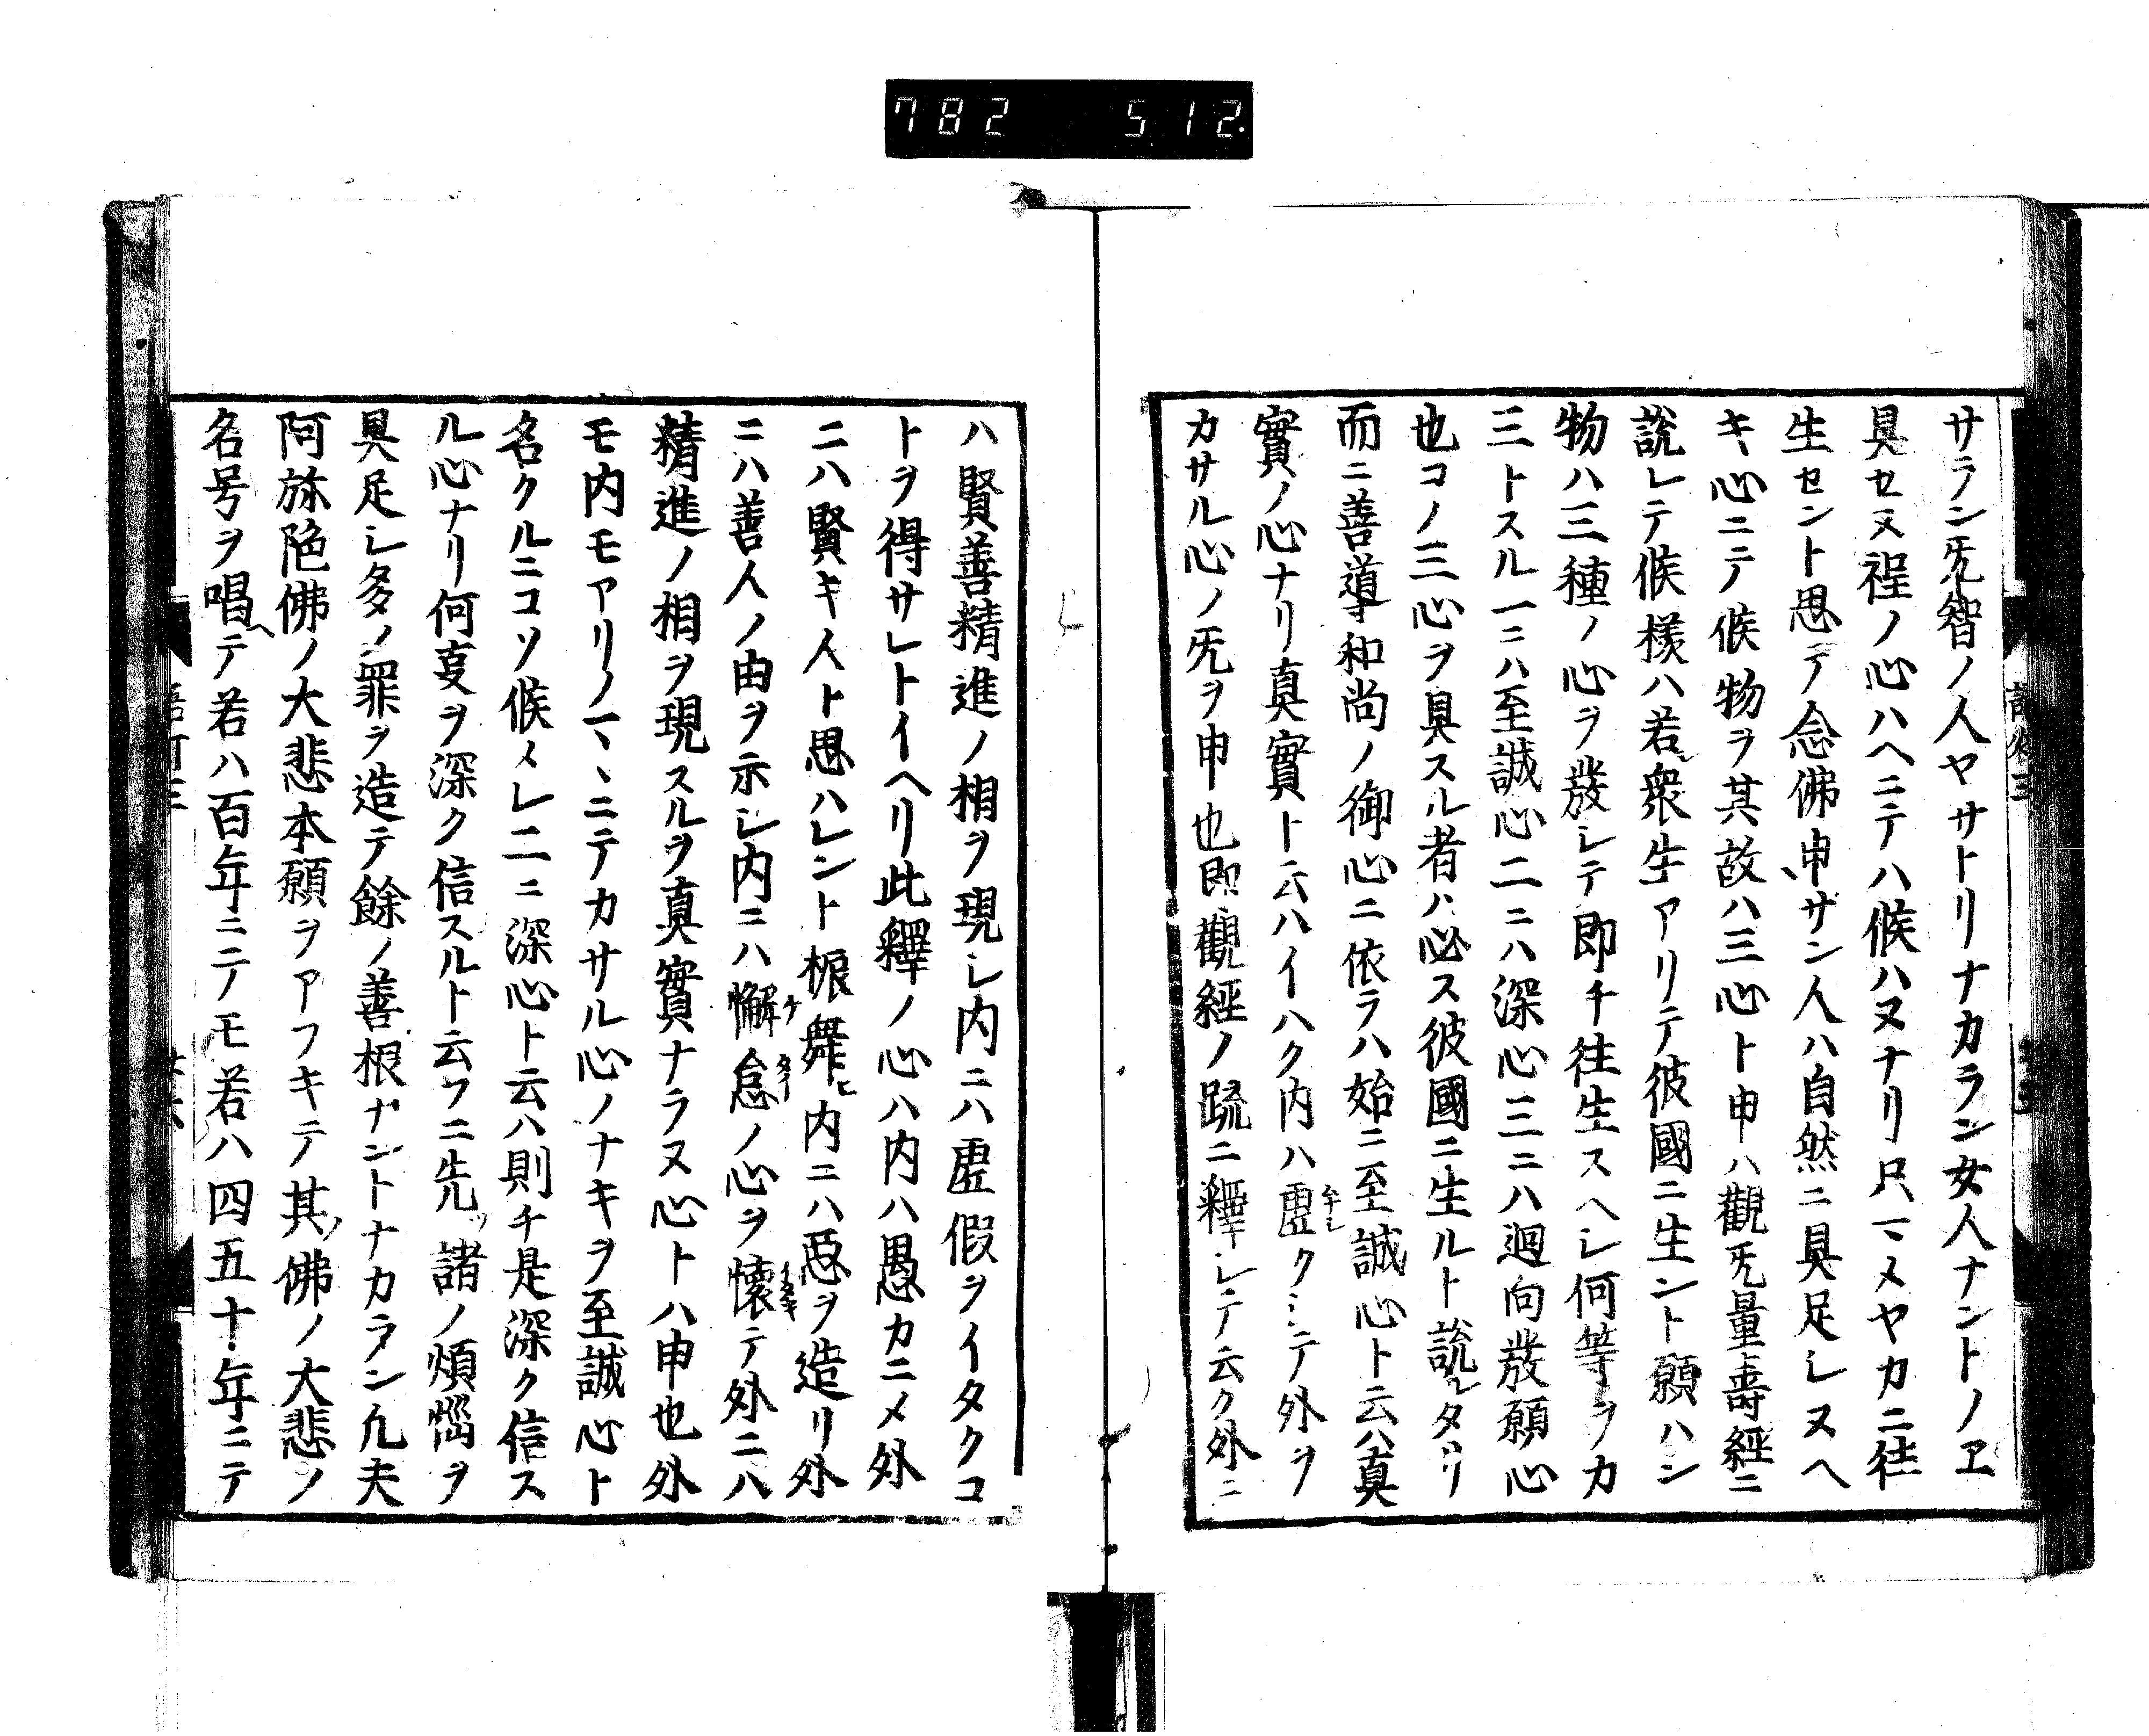 782 512
サラン旡智ノ人ヤサトリナカラン女人ナントノヱ
具セヌ程ノ心ハヘニテハ候ハヌナリ只マメヤカニ往
生セント思テ念佛申サン人ハ自然ニ具足シヌヘ
キ心ニテ候物ヲ其故ハ三心ト申ハ觀旡量壽經ニ
說レテ候樣ハ若衆生アリテ彼國ニ生ント願ハン
物ハ三種ノ心ヲ發シテ即チ往生スヘシ何等ヲカ
三トスル一ニハ至誠心二ニハ深心三ニハ廻向發願心
也コノ三心ヲ具スル者ハ必ス彼國ニ生ルト說レタリ
而ニ善導和尚ノ御心ニ依ラハ始ニ至誠心ト云ハ真
實ノ心ナリ真實ト云ハイハク内ハ虛クシテ外ヲ
カサル心ノ旡ヲ申也即觀經ノ疏ニ釋シテ云ク外ニ
ハ賢善精進ノ相ヲ現シ内ニハ虛假ヲイタクコ
トヲ得サレトイヘリ此釋ノ心ハ内ハ愚カニメ外
ニハ賢キ人ト思ハレント振舞ヒ内ニハ惡ヲ造リ外
ニハ善人ノ由ヲ示シ内ニハ懈怠ノ心ヲ懷テ外ニハ
精進ノ相ヲ現スルヲ真實ナラヌ心トハ申也外
モ内モアリノマヽニテカサル心ノナキヲ至誠心ト
名クルニコソ候メレ二ニ深心ト云ハ則チ是深ク信ス
ル心ナリ何叓ヲ深ク信スルト云フニ先ツ諸ノ煩惱ヲ
具足シ多ノ罪ヲ造テ餘ノ善根ナントナカラン凡夫
阿弥陁佛ノ大悲本願ヲアフキテ其ノ佛ノ大悲ノ
名号ヲ唱ヘテ若ハ百年ニテモ若ハ四五十年ニテ